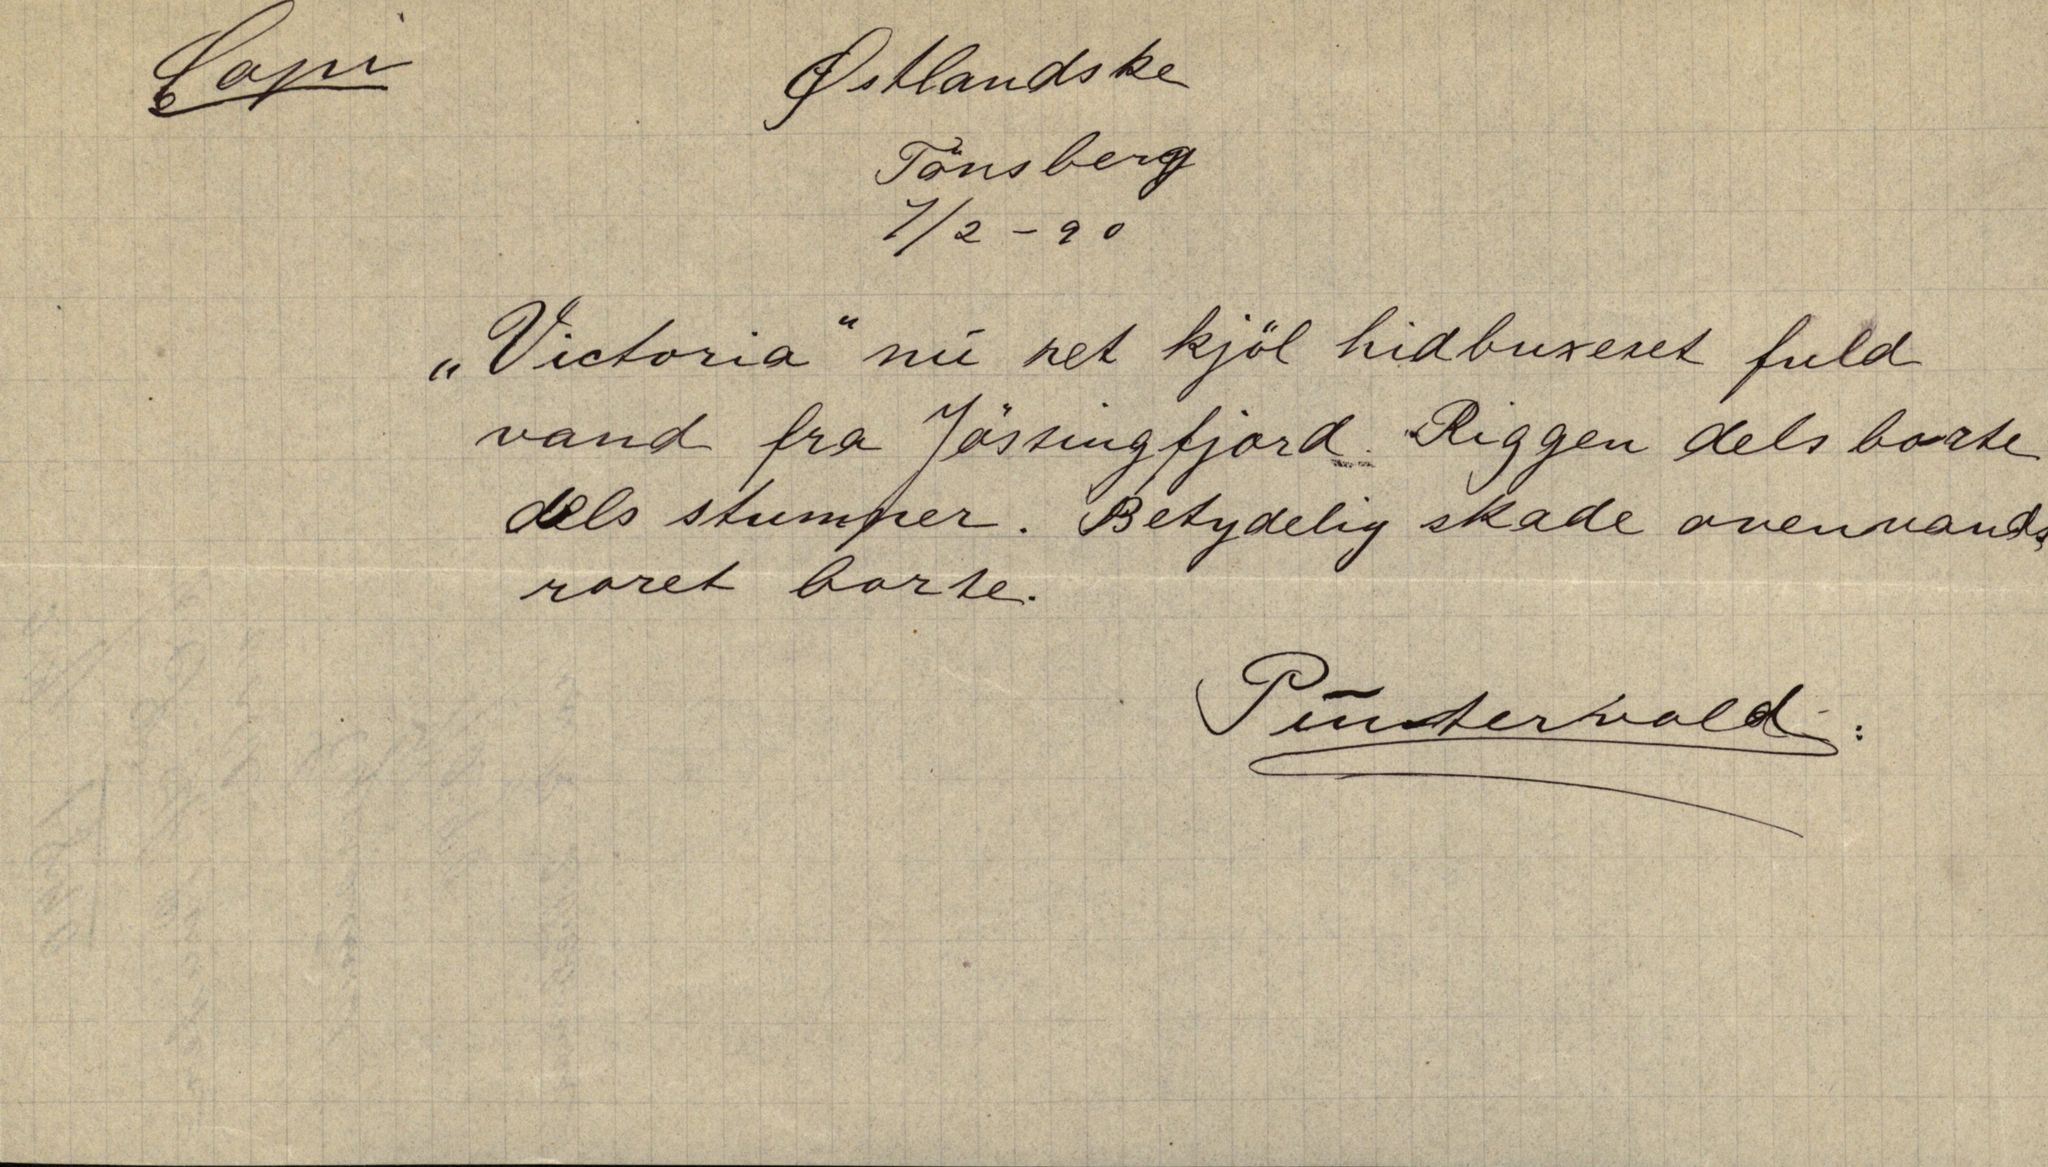 Copi
Østlandske
Tönsberg
7/2 - 90
„Victoria“ nu ret kjöl hidbuxeret fuld
vand fra Jössingfjord. Riggen dels borte
dels stumper. Betydelig skade ovenvands,
roret borte.
Puntervold